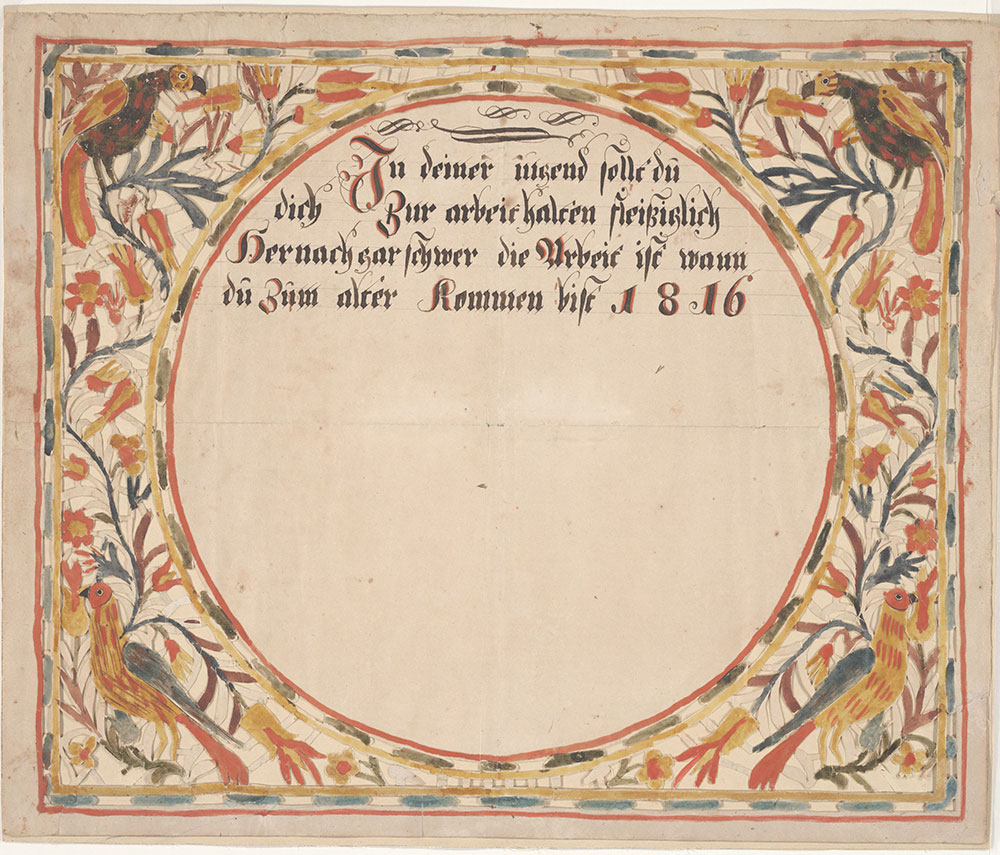 In deiner iugend sollt du
dich Zur arbeit halten fleißiglich
Hernach gar schwer die Arbeit ist wann
du Zum alter Kommen bist 1816